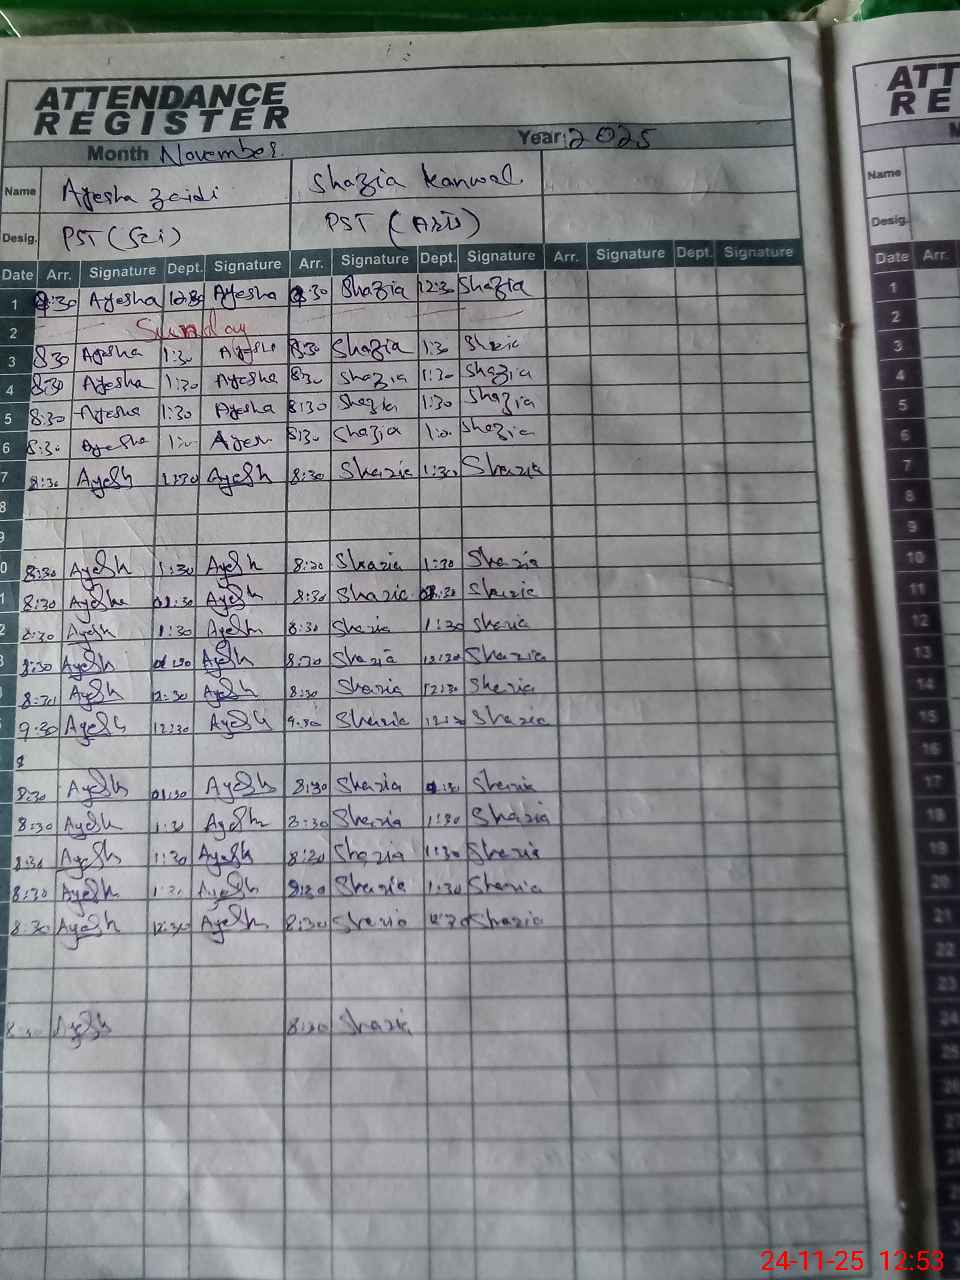 ATTENDANCE
REGISTER
Month November. Year: 2025
Name Ayesha Zaidi Shazia Kanwal
Desig. PST (Sci) PST (Arts)
Date Arr. Signature Dept. Signature Arr. Signature Dept. Signature Arr. Signature Dept. Signature
1 8:30 Ayesha 12:30 Ayesha 8:30 Shazia 12:30 Shazia
2 Sunday
3 8:30 Ayesha 1:30 Ayesha 8:30 Shazia 1:30 Shazia
4 8:30 Ayesha 1:30 Ayesha 8:30 Shazia 1:30 Shazia
5 8:30 Ayesha 1:30 Ayesha 8:30 Shazia 1:30 Shazia
6 8:30 Ayesha Ayesh 8:30 Shazia Shazia
7 8:30 Ayesh 1:30 Ayesh 8:30 Shazia 1:30 Shazia
8
9
0 8:30 Ayesh 1:30 Ayesh 8:30 Shazia 1:30 Shazia
1 8:30 Ayesha 01:30 Ayesh 8:30 Shazia 01:30 Shazia
2 8:30 Ayesh 1:30 Ayesh 8:30 Shazia 1:30 Shazia
3 8:30 Ayesh Ayesh 8:30 Shazia Shazia
8:30 Ayesh 12:30 Ayesh 8:30 Shazia 12:30 Shazia
9:30 Ayesh 12:30 Ayesh 9:30 Shazia 12:30 Shazia
8:30 Ayesh 01:30 Ayesh 8:30 Shazia Shazia
8:30 Ayesh 1:30 Ayesh 8:30 Shazia 1:30 Shazia
8:30 Ayesh 1:30 Ayesh 8:30 Shazia 1:30 Shazia
8:30 Ayesh 1:30 Ayesh 8:30 Shazia 1:30 Shazia
8:30 Ayesh 12:30 Ayesh 8:30 Shazia Shazia
Ayesh 8:30 Shazia
ATT
RE
Name
Desig.
Date Arr.
1
2
3
4
5
6
7
8
9
10
11
12
13
14
15
16
17
18
19
20
21
22
23
24
25
24-11-25 12:53